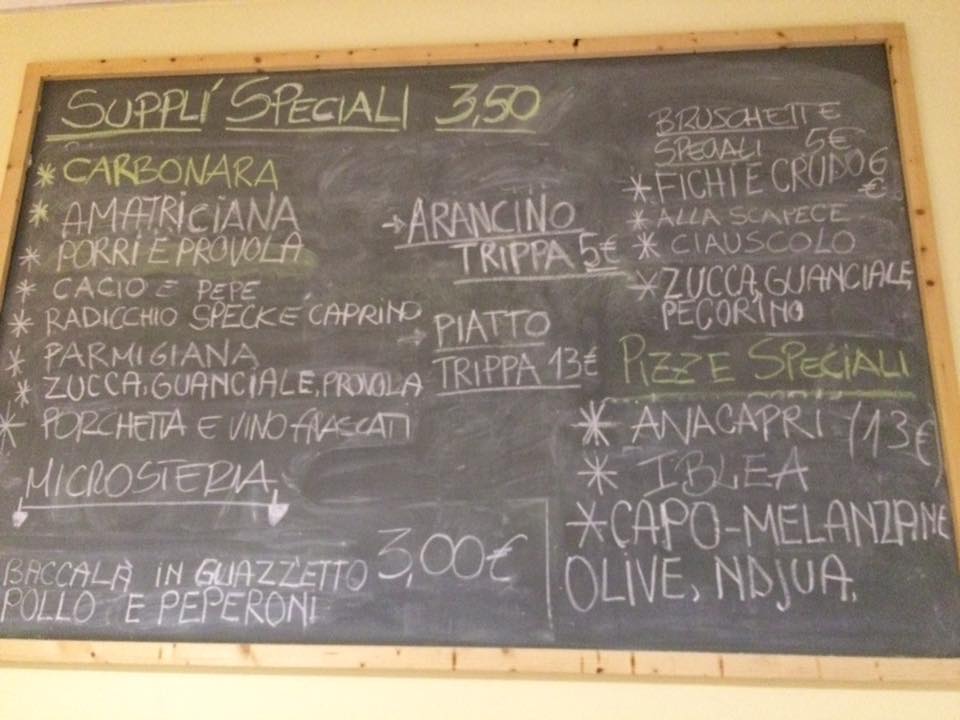 SUPPLÍ SPECIALI 3,50
* CARBONARA
* AMATRICIANA
* PORRI E PROVOLA
* CACIO E PEPE
* RADICCHIO SPECK E CAPRINO
* PARMIGIANA
* ZUCCA, GUANCIALE, PROVOLA
* PORCHETTA E VINO FRASCATI
MICROSTERIA
BACCALÀ IN GUAZZETTO 3,00€
POLLO E PEPERONI
→ ARANCINO
TRIPPA 5€
→ PIATTO
TRIPPA 13€
BRUSCHETTE
SPECIALI 5€
* FICHI E CRUDO 6
€
* ALLA SCAPECE
* CIAUSCOLO
* ZUCCA, GUANCIALE,
PECORINO
PIZZE SPECIALI
* ANACAPRI (13€)
* IBLEA
* CAPO-MELANZANE
OLIVE, NDJUA,